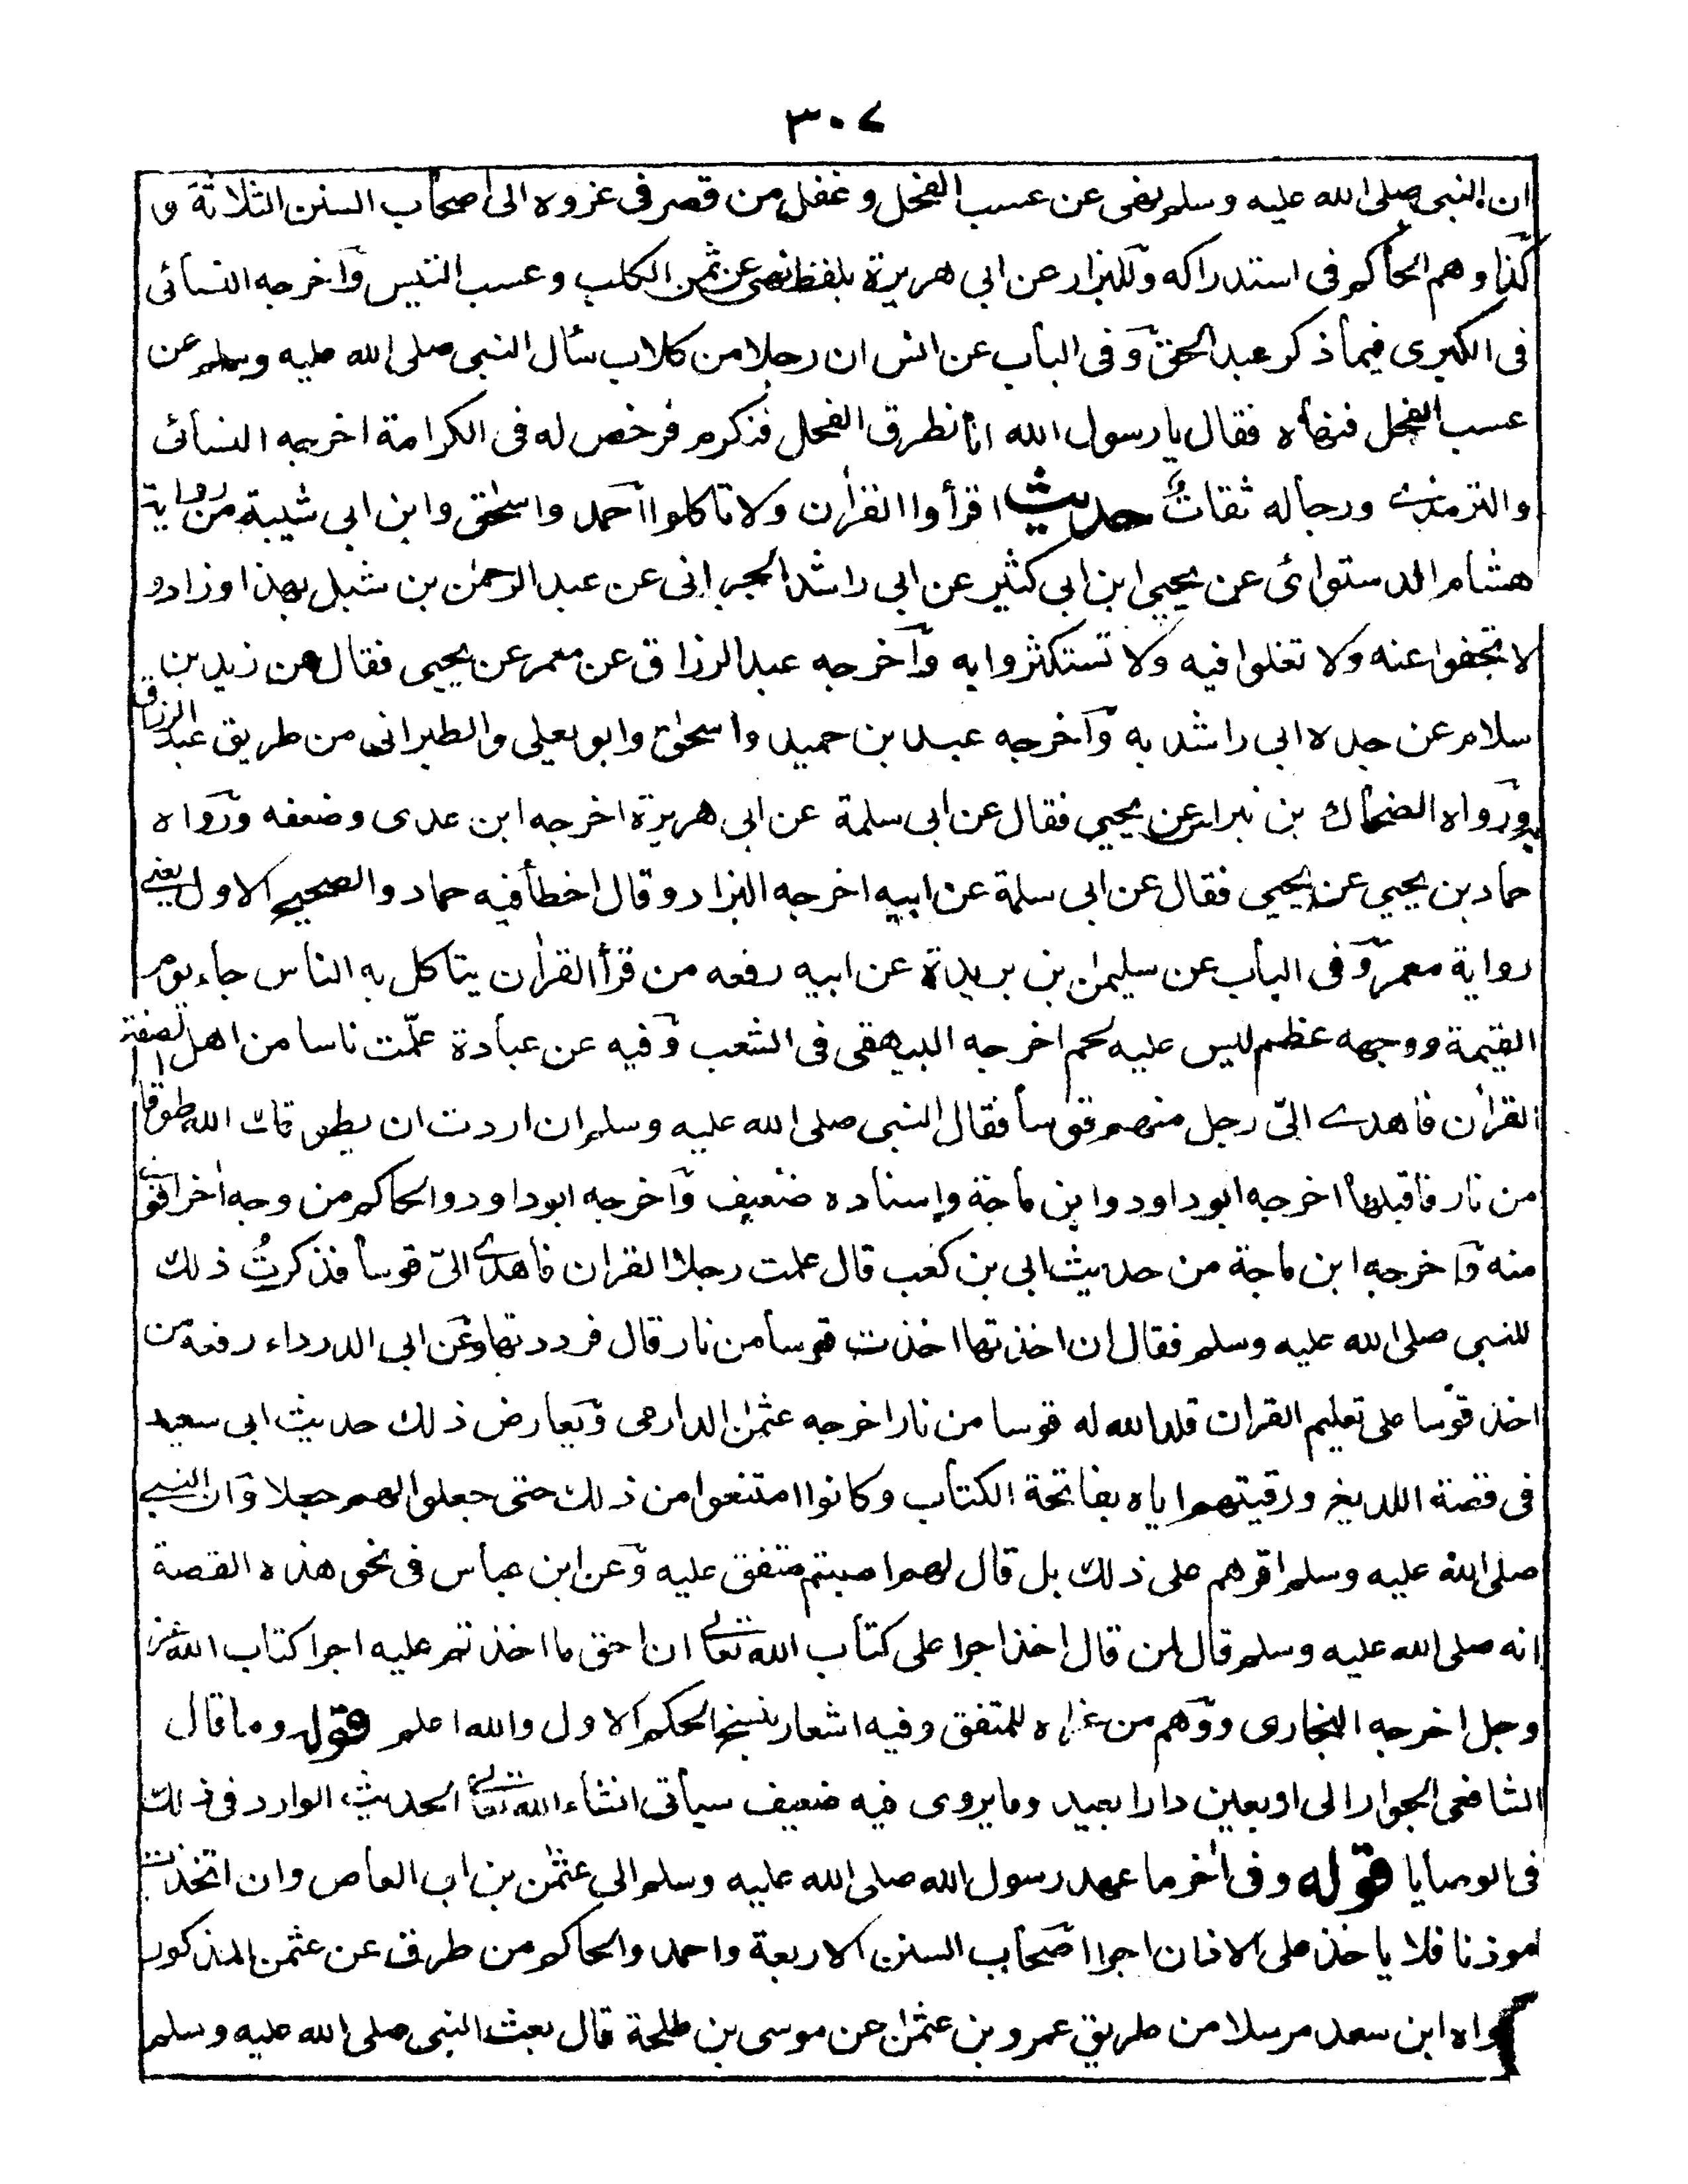 ٣٠٧
ان النبى صلى الله عليه وسلم نهى عن عسب الفحل وغفل من قصر فى عزوه الى اصحاب السنن الثلاثة و
كذا وهم الحاكم فى استدراكه وللبزار عن ابى هريرة بلفظ نهى عن ثمن الكلب وعسب التيس وآخرجه النسائى
فى الكبرى فيما ذكر عبد الحق وفى الباب عن انس ان رجلا من كلاب سأل النبى صلى الله عليه وسلم عن
عسب الفحل فنهاه فقال يا رسول الله انا نطرق الفحل فنكرم فرخص له فى الكرامة اخرجه النسائى
والترمذى ورجاله ثقات حديث اقرأوا القران ولا تاكلوا احمد واسحق وابن ابى شيبة من رواية
هشام الدستوائى عن يحيى ابن ابى كثير عن ابى راشد الحبرانى عن عبد الرحمن بن شبل بهذا وزاد و
لا تجفوا عنه ولا تغلوا فيه ولا تستكثروا به وآخرجه عبد الرزاق عن معمر عن يحيى فقال عن زيد بن
سلام عن جده ابى راشد به وآخرجه عبد بن حميد واسحق وابو يعلى والطبرانى من طريق عبد الرزاق
به ورواه الضحاك بن نبراس عن يحيى فقال عن ابى سلمة عن ابى هريرة اخرجه ابن عدى وضعفه ورواه
حماد بن يحيى عن يحيى فقال عن ابى سلمة عن ابيه اخرجه البزار وقال اخطأ فيه حماد والصحيح الاول يعنى
رواية معمر وفى الباب عن سليمن بن بريدة عن ابيه رفعه من قرأ القران يتاكل به الناس جاء يوم
القيمة ووجهه عظم ليس عليه لحم اخرجه البيهقى فى الشعب وفيه عن عبادة علّمت ناسا من اهل الصفة
القران فاهدى الىّ رجل منهم قوسا فقال النبى صلى الله عليه وسلم ان اردت ان يطوقك الله طوقا
من نار فاقبلها اخرجه ابو داود وابن ماجة وإسناده ضعيف وآخرجه ابو داود والحاكم من وجه اخر اقوى
منه وآخرجه ابن ماجة من حديث ابى بن كعب قال علمت رجلا القران فاهدى الىّ قوسا فذكرتُ ذلك
للنبى صلى الله عليه وسلم فقال ان اخذتها اخذت قوسا من نار قال فرددتها وعن ابى الدرداء رفعه من
اخذ قوسا على تعليم القران قلده الله له قوسا من نار اخرجه عثمن الدارمى ويعارض ذلك حديث ابى سعيد
فى قصة اللديغ ورقيتهم اياه بفاتحة الكتاب وكانوا امتنعوا من ذلك حتى جعلوا لهم جعلا وان النبى
صلى الله عليه وسلم اقرهم على ذلك بل قال لهم اصبتم متفق عليه وعن ابن عباس فى نحو هذه القصة
انه صلى الله عليه وسلم قال لمن قال اخذ اجرا على كتاب الله تعالى ان احق ما اخذتم عليه اجرا كتاب الله عز
وجل اخرجه البخارى ووهم من عزاه للمتفق وفيه اشعار بنسخ الحكم الاول والله اعلم قوله وما قال
الشافعى الجوار الى اربعين دارا بعيد وما يروى فيه ضعيف سيأتى انشاء الله تعالى الحديث الوارد فى ذلك
فى الوصايا قوله وفى اخر ما عهد رسول الله صلى الله عليه وسلم الى عثمن بن اب العاص وان اتخذت
موذنا فلا ياخذ على الاذان اجرا اصحاب السنن الاربعة واحمد والحاكم من طرق عن عثمن المذكور
ورواه ابن سعد مرسلا من طريق عمرو بن عثمن عن موسى بن طلحة قال بعث النبى صلى الله عليه وسلم